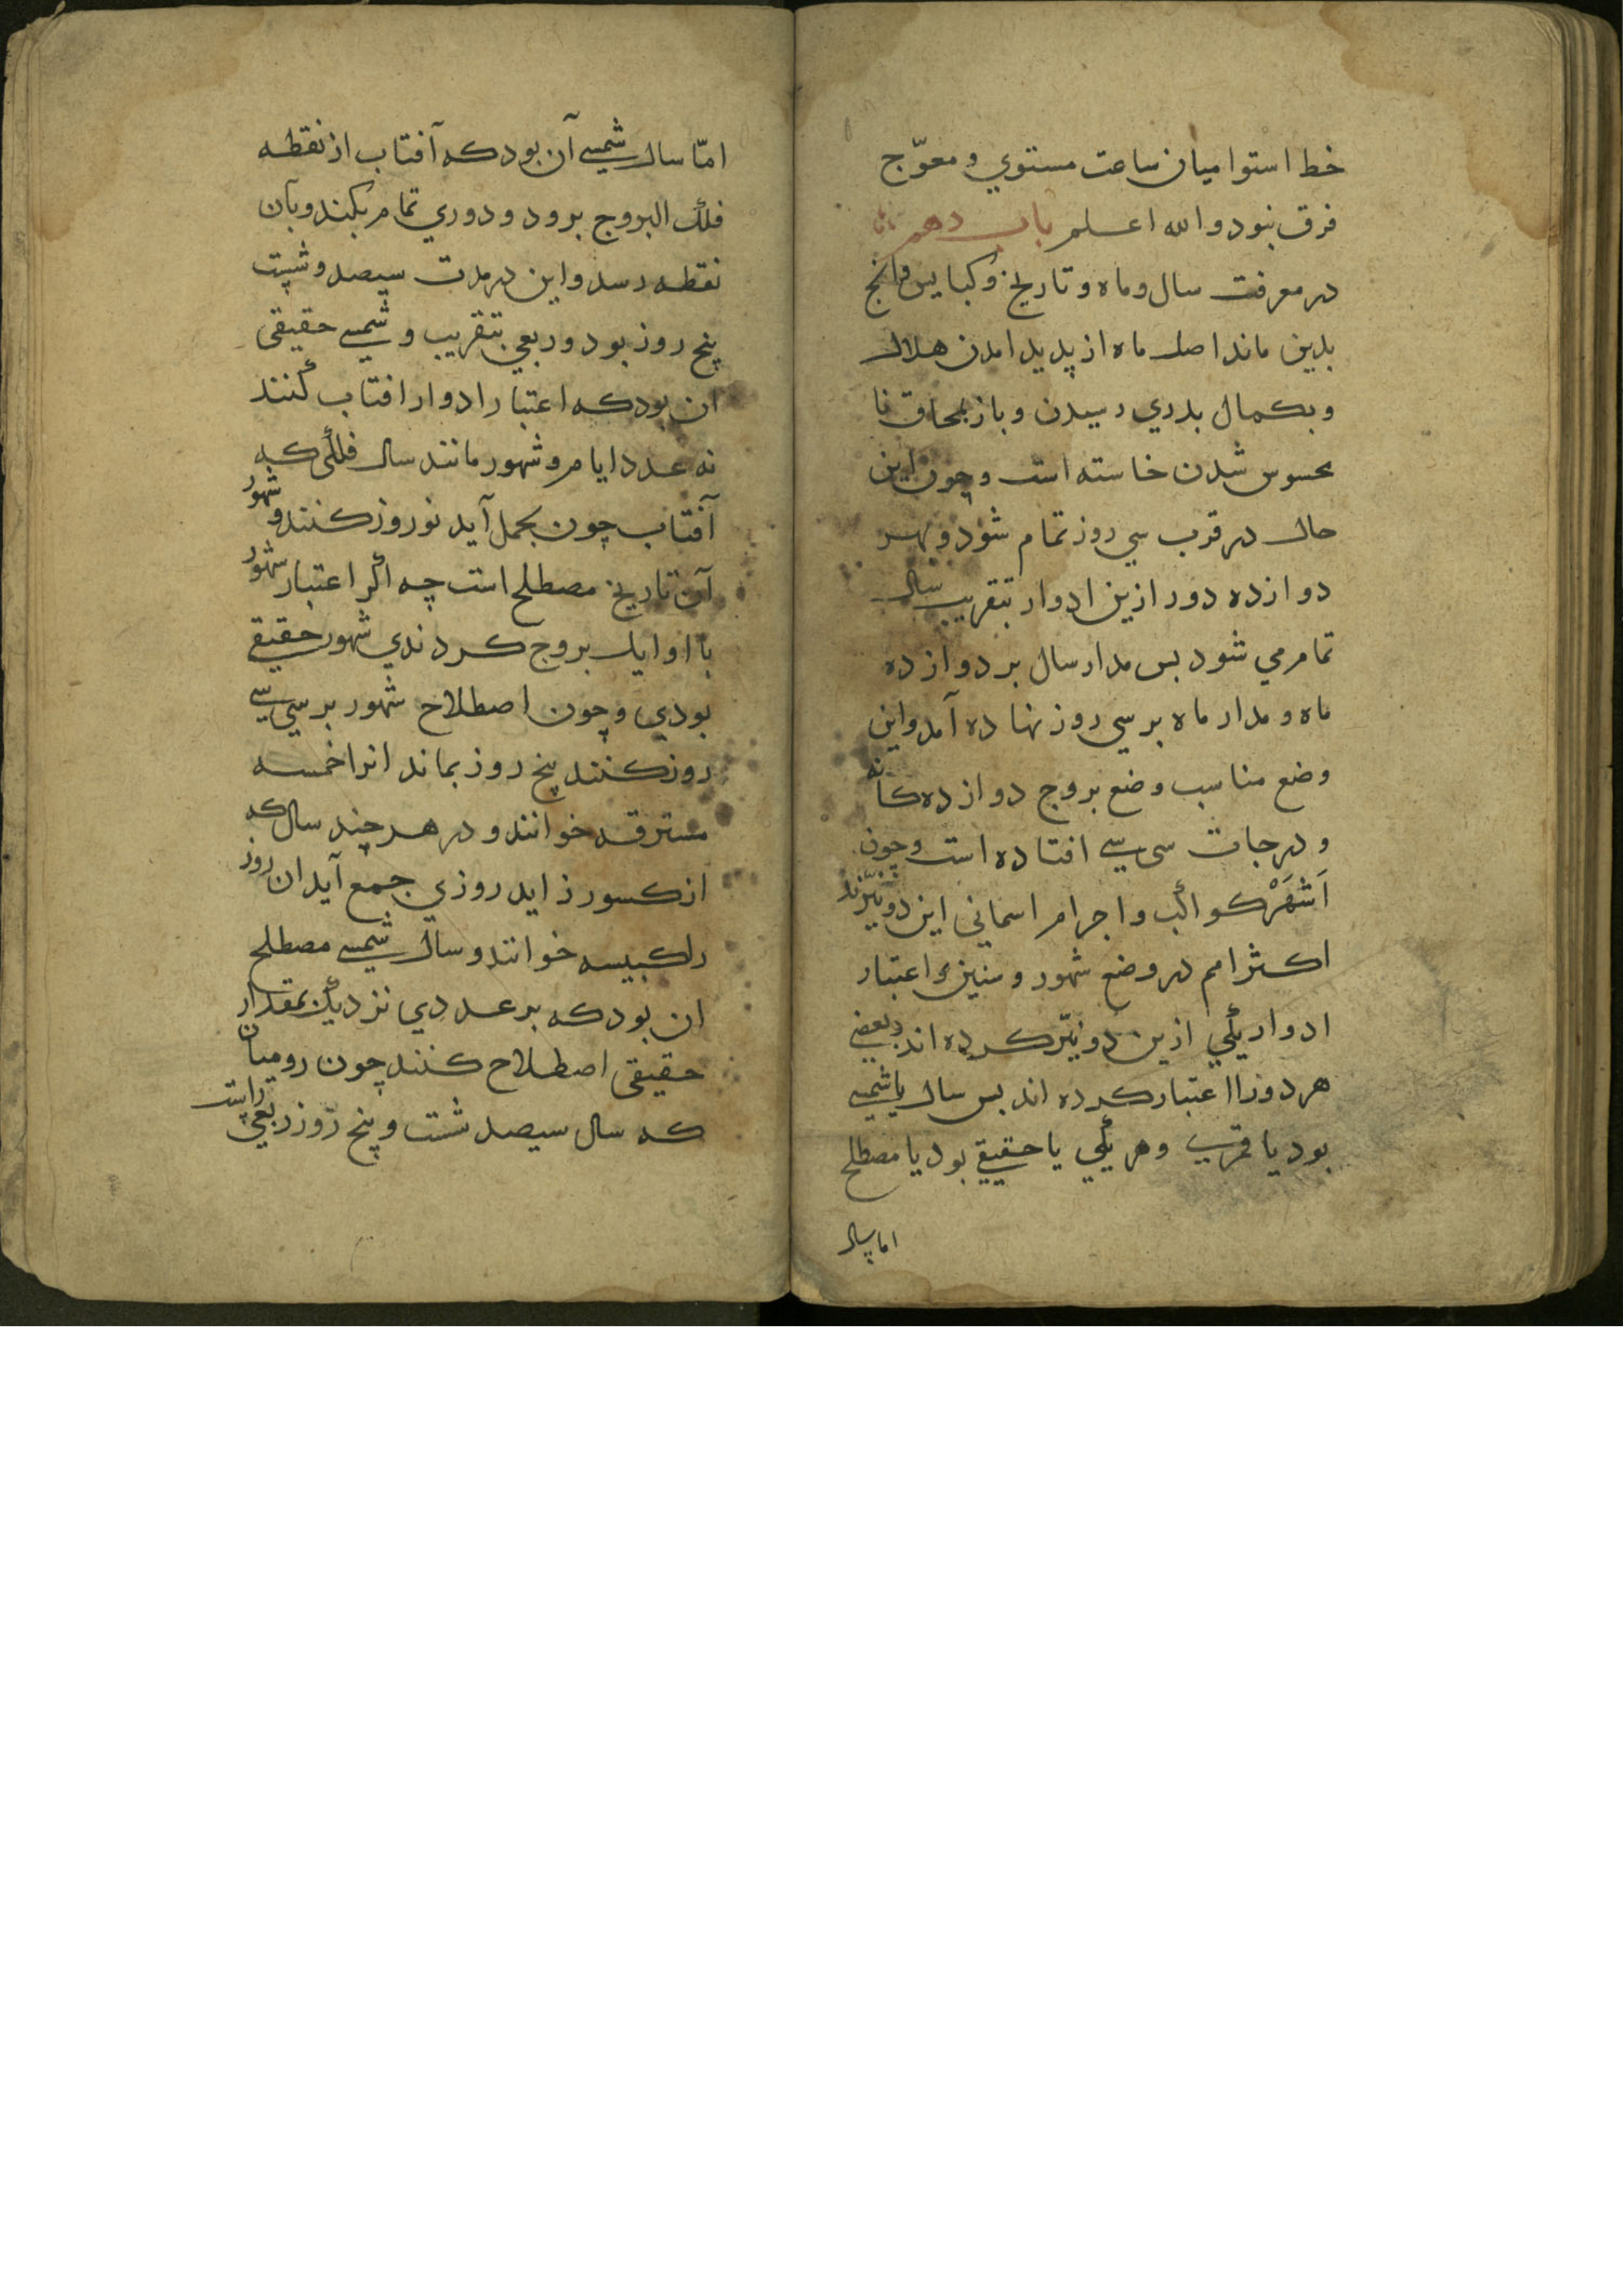 خط استوا میان ساعت مستوي و معوّج
فرق نبود والله اعلم باب دهم
در معرفت سال و ماه و تاریخ و کبایس وانج
بدین ماند اصل ماه از پدید امدن هلال
و بکمال بدري رسیدن و باز بمحاق نا
محسوس شدن خاسته است و چون این
حال در قرب سي روز تمام شود و بهر
دوازده دور ازین ادوار بتقریب سال
تمام مي شود بس مدار سال بر دوازده
ماه و مدار ماه بر سي روز نهاده آمد و این
وضع مناسب وضع بروج دوازده کانه
و درجات سي سي افتاده است و چون
اَشْهَرْ کواکب و اجرام اسماني این دو نیّرند
اکثر امم در وضع شهور و سنین اعتبار
ادوار یکي ازین دو نیّر کرده اند و بعضي
هر دو را اعتبار کرده اند بس سال یا شمسي
بود یا قمري و هر یکي یا حقیقي بود یا مصطلح
اما سال
امّا سال شمسي آن بود که آفتاب از نقطه
فلک البروج برود و دوري تمام بکند و بآن
نقطه رسد و این در مدت سیصد و شست
پنج روز بود و ربعي بتقریب و شمسي حقیقي
ان بود که اعتبار ادوار افتاب کنند
نه عدد ایام و شهور مانند سال فلکي که
آفتاب چون بحمل آید نوروز کنند و شهور
آن تاریخ مصطلح است چه اکر اعتبار شهور
با اوایل بروج کردندي شهور حقیقي
بودي و چون اصطلاح شهور بر سي سي
روز کنند پنج روز بماند انرا خمسه
مسترقه خوانند و در هر چند سال که
از کسور زاید روزي جمع آید ان روز
را کبیسه خوانند و سال شمسي مصطلح
ان بود که بر عددي نزدیک بمقدار
حقیقي اصطلاح کنند چون رومیان
که سال سیصد شست و پنج روز ربعي راست